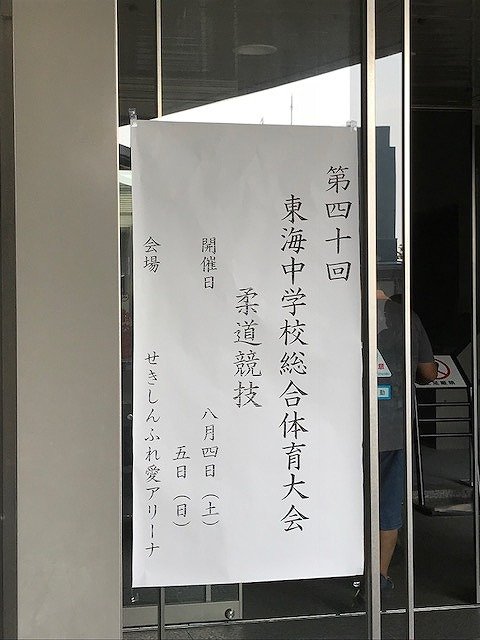 第四十回
東海中学校総合体育大会
柔道競技
開催日 八月四日（土）
五日（日）
会場 せきしんふれ愛アリーナ